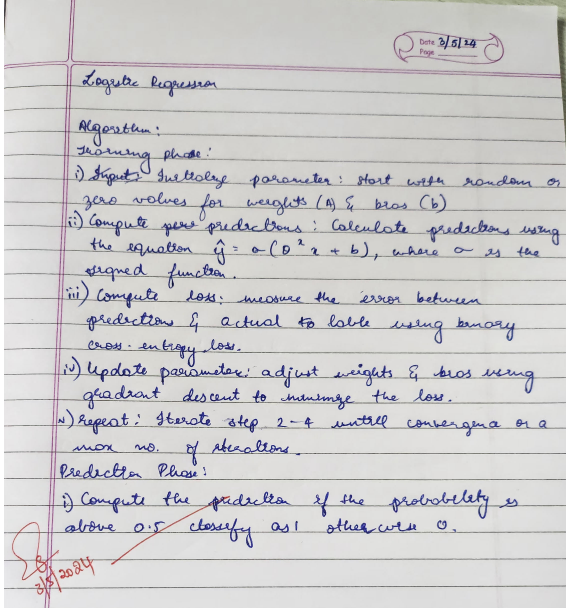 Date 3/5/24
Page
Logistic Regression
Algorithm:
Learning phase:
i) Input: Initialize parameter: start with random or
zero values for weights (A) & bias (b)
ii) Compute pew predictions: Calculate predictions using
the equation ŷ = σ(θ² x + b), where σ is the
signed function.
iii) Compute loss: measure the error between
predictions & actual to lable using binary
cross-entropy loss.
iv) Update parameter: adjust weights & bias using
gradient descent to minimize the loss.
v) repeat: Iterate step 2-4 untill convergence or a
max no. of iterations.
Prediction Phase:
i) Compute the prediction if the probability is
above 0.5 classify as 1 otherwise 0.
3/5/2024